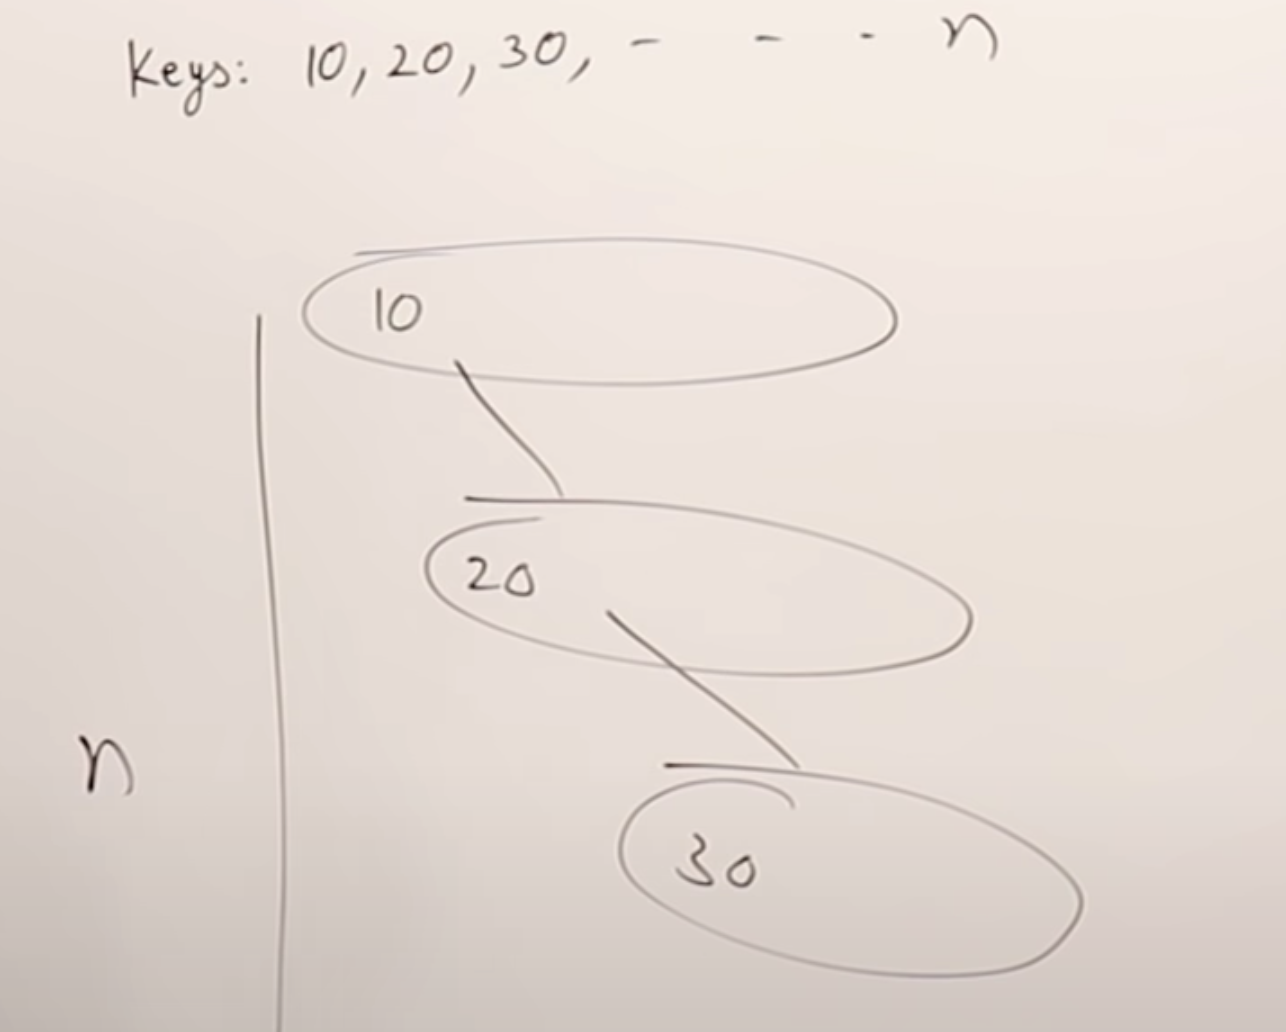 Keys: 10, 20, 30, - - - n
10
20
n
30